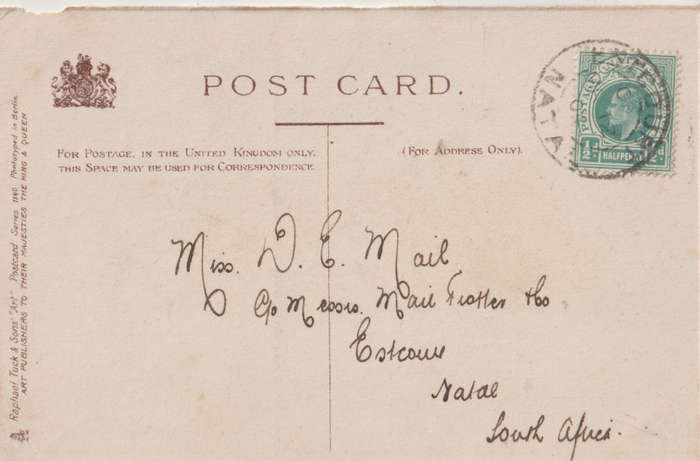 POST CARD.
FOR POSTAGE, IN THE UNITED KINGDOM ONLY,
THIS SPACE MAY BE USED FOR CORRESPONDENCE
(FOR ADDRESS ONLY).
POSTAGE
½D HALFPENNY
NATAL
Miss. D. E. Mail
C/o Messrs. Mail &Co
Estcourt
Natal
South Africa.
Raphael Tuck & Sons' "Art" Postcard Series Phototyped in Berlin.
ART PUBLISHERS TO THEIR MAJESTIES THE KING & QUEEN